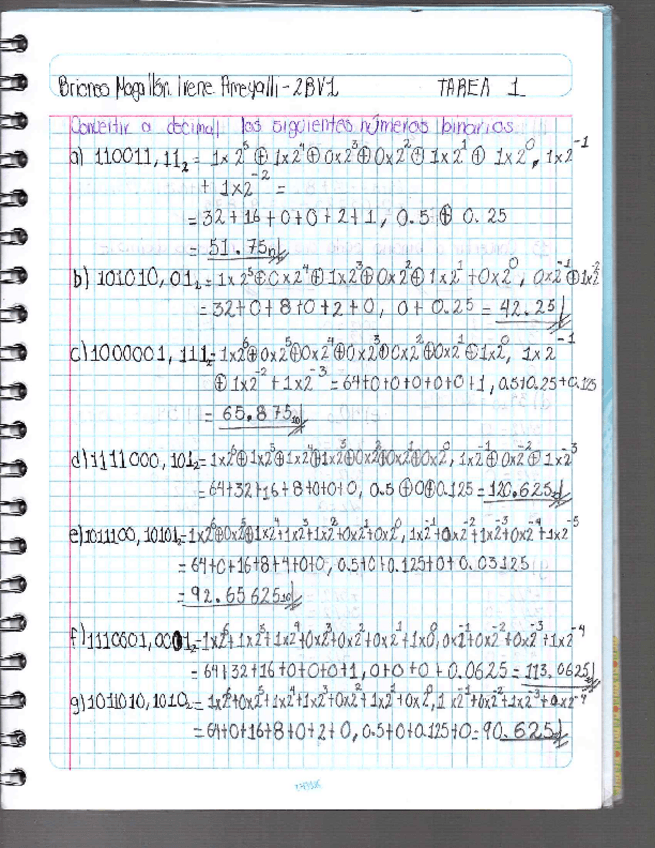 Briones Magallón Irene Ameyalli - 2BV1 TAREA 1
Convertir a decimal los siguientes números binarios.
a) 110011,11₂ = 1x2⁵ ⊕ 1x2⁴ ⊕ 0x2³ ⊕ 0x2² ⊕ 1x2¹ ⊕ 1x2⁰, 1x2⁻¹
+ 1x2⁻² =
= 32+16+0+0+2+1, 0.5 ⊕ 0.25
= 51.75₁₀
b) 101010,01₂ = 1x2⁵⊕0x2⁴⊕1x2³⊕0x2²⊕1x2¹+0x2⁰, 0x2⁻¹⊕1x2⁻²
= 32+0+8+0+2+0, 0+0.25 = 42.25
c) 1000001,111₂ = 1x2⁶⊕0x2⁵⊕0x2⁴⊕0x2³⊕0x2²⊕0x2¹⊕1x2⁰, 1x2⁻¹
⊕ 1x2⁻² + 1x2⁻³ = 64+0+0+0+0+0+1, 0.5+0.25+0.125
= 65.875₁₀
d) 1111000,101₂ = 1x2⁶⊕1x2⁵⊕1x2⁴⊕1x2³⊕0x2²⊕0x2¹⊕0x2⁰, 1x2⁻¹⊕0x2⁻²⊕1x2⁻³
= 64+32+16+8+0+0+0, 0.5⊕0⊕0.125 = 120.625
e) 1011100,10101₂ = 1x2⁶⊕0x2⁵⊕1x2⁴+1x2³+1x2²+0x2¹+0x2⁰, 1x2⁻¹+0x2⁻²+1x2⁻³+0x2⁻⁴+1x2⁻⁵
= 64+0+16+8+4+0+0, 0.5+0+0.125+0+0.03125
= 92.65625₁₀
f) 1110001,0001₂ = 1x2⁶+1x2⁵+1x2⁴+0x2³+0x2²+0x2¹+1x2⁰, 0x2⁻¹+0x2⁻²+0x2⁻³+1x2⁻⁴
= 64+32+16+0+0+0+1, 0+0+0+0.0625 = 113.0625
g) 1011010,1010₂ = 1x2⁶+0x2⁵+1x2⁴+1x2³+0x2²+1x2¹+0x2⁰, 1x2⁻¹+0x2⁻²+1x2⁻³+0x2⁻⁴
= 64+0+16+8+0+2+0, 0.5+0+0.125+0 = 90.625